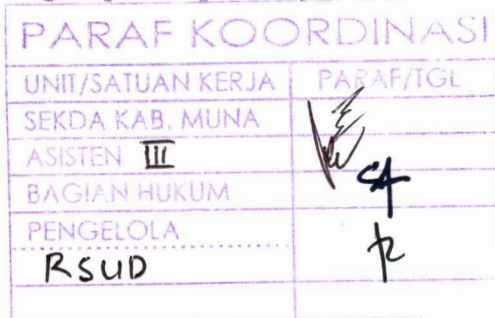 PARAF KOORDINASI
UNIT/SATUAN KERJA PARAF/TGL
SEKDA KAB. MUNA
ASISTEN III
BAGIAN HUKUM
PENGELOLA
RSUD